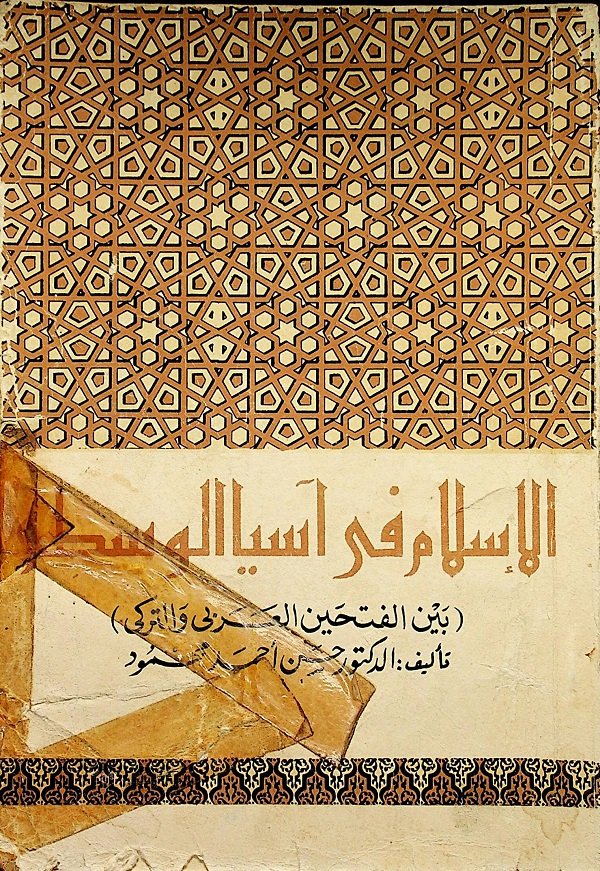 الإسلام في آسيا الوسطى
(بَيْن الفتحَين العَرَبي وَالتركي)
تأليف: الدكتور حسن أحمد محمود